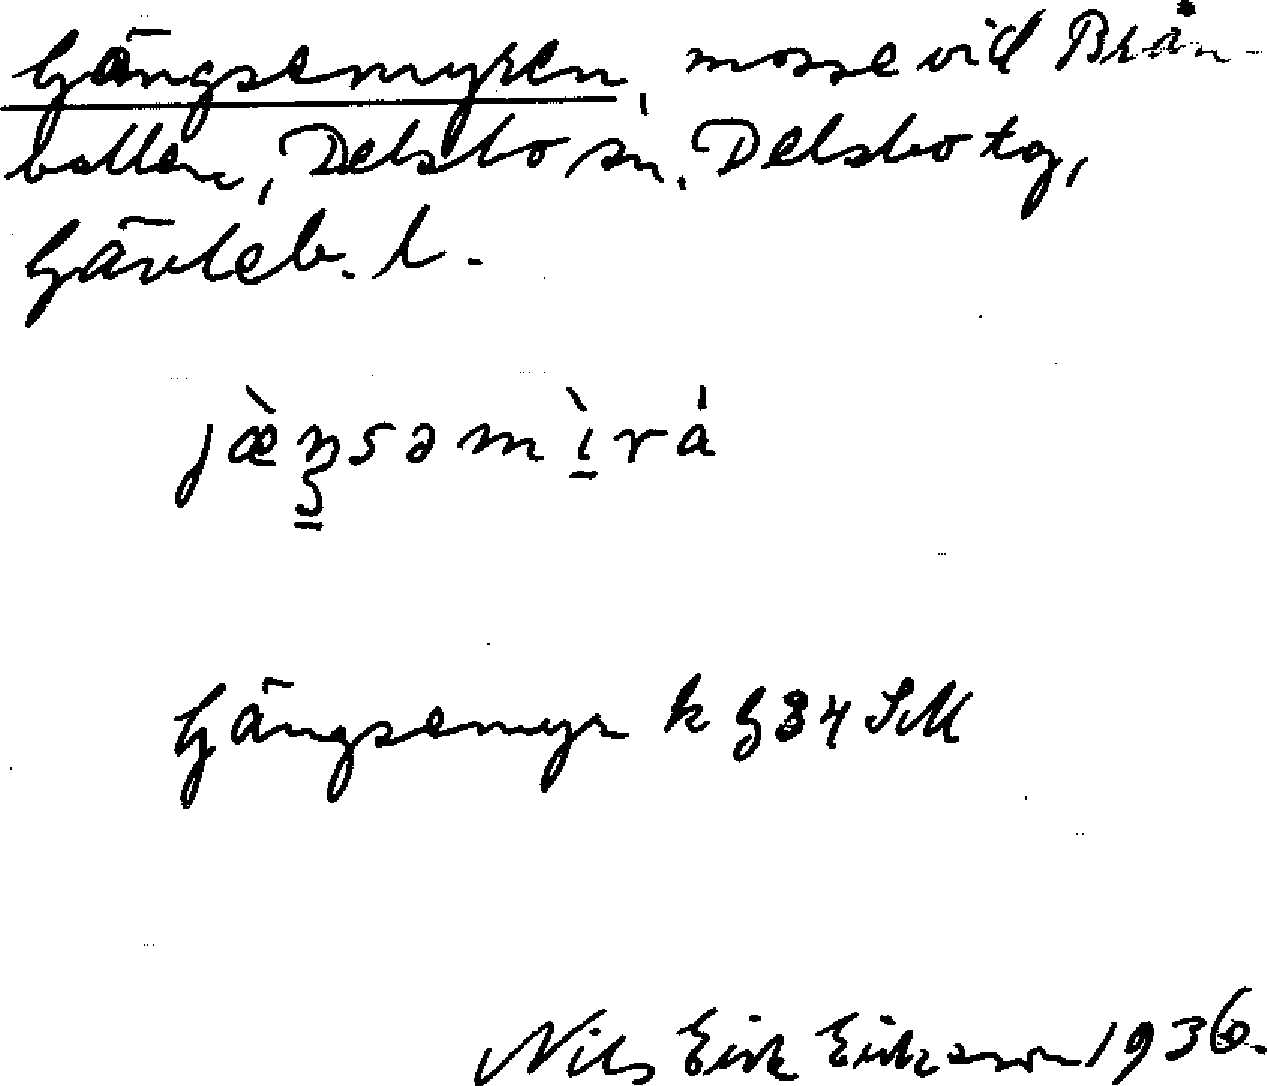 Gängsemyren, mosse vid Brån-
bollen, Delsbo sn. Delsbo tg,
Gävleb. l.
jæ̀ŋsəmìrá
Gängsemyr k G 34 SM
Nils Erik Erikson 1936.